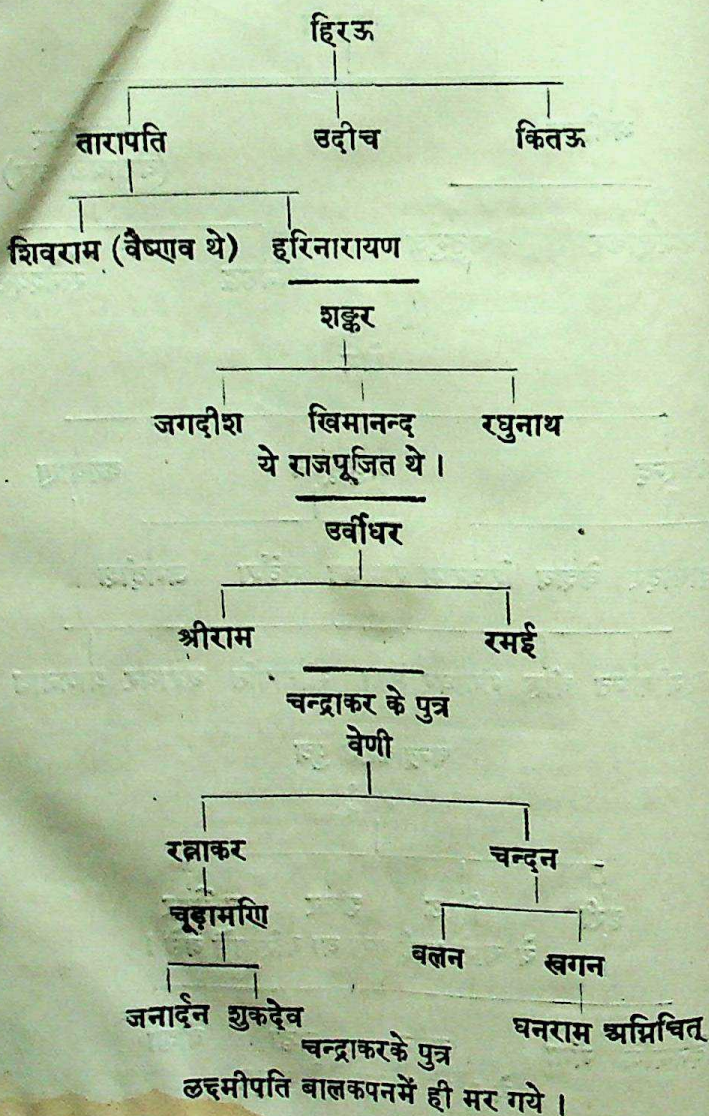 हिरऊ
तारापति उदीच कितऊ
शिवराम (वैष्णव थे) हरिनारायण
शङ्कर
जगदीश खिमानन्द रघुनाथ
ये राजपूजित थे ।
उर्वीधर
श्रीराम रमई
चन्द्राकर के पुत्र
वेणी
रत्नाकर चन्दन
चूड़ामणि
बलन खगन
जनार्दन शुकदेव घनराम अग्निचित्
चन्द्राकरके पुत्र
लक्ष्मीपति बालकपनमें ही मर गये ।